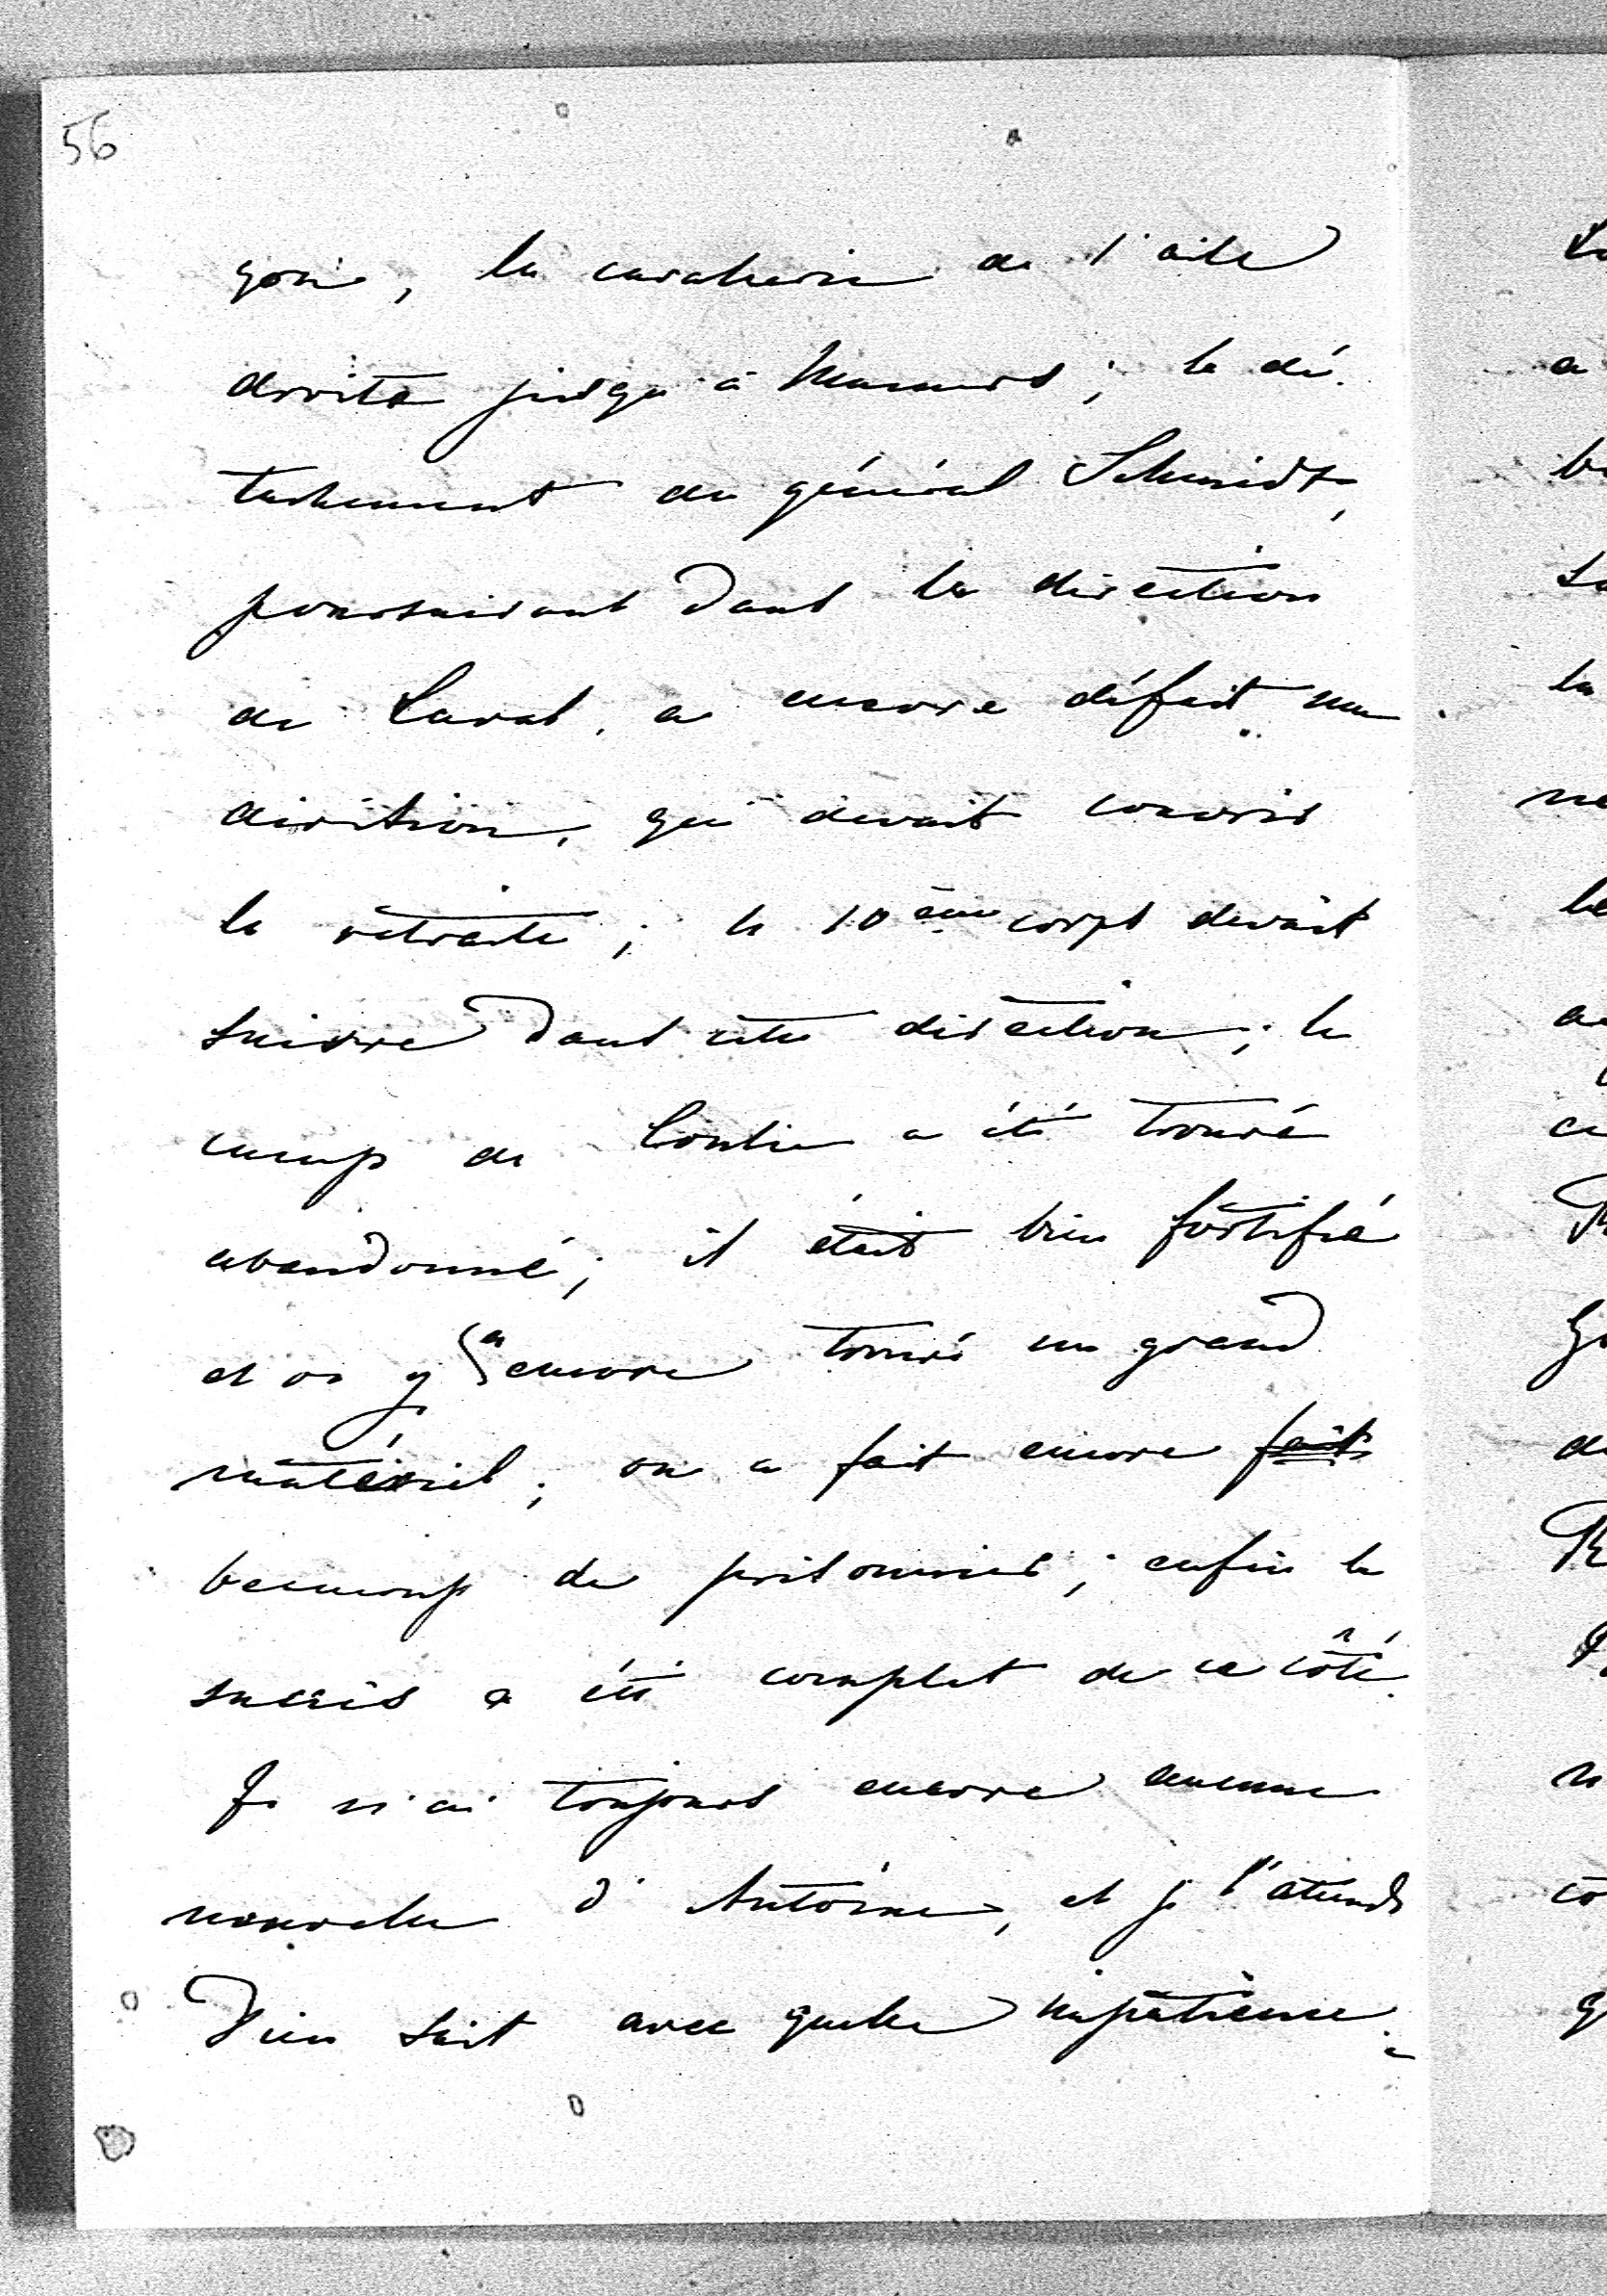 56
gorie, la cavalerie de l'aile
droite jusqu'à Mamers; le dé-
tachement du général Schmidt,
poursuivant dans la direction
de Laval, a encore défait une
division, qui devait couvrir
la retraite; le 10ème corps devait
suivre dans cette direction; le
camp de Conlie a été trouvé
abandonné; il était bien fortifié
et on y a encore trouvé un grand
matériel; on a fait encore fait
beaucoup de prisonniers; enfin le
succès a été complet de ce côté.
Je n'ai toujours encore aucune
nouvelle d'Antoine, et je l'attends
Dieu sait avec quelle impatience.